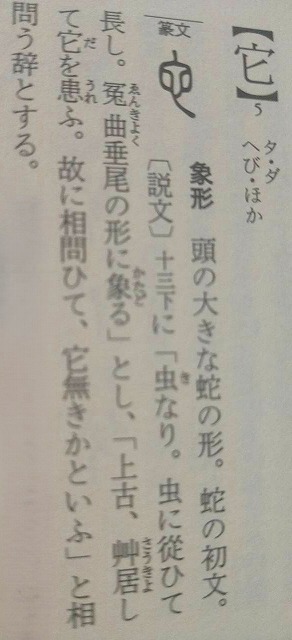 【它】5 タ・ダ
へび・ほか
象形 頭の大きな蛇の形。蛇の初文。
篆文
〔説文〕十三下に「虫なり。虫に從ひて
長し。冤曲垂尾の形に象る」とし、「上古、艸居し
て它を患ふ。故に相問ひて、它無きかといふ」と相
問う辞とする。